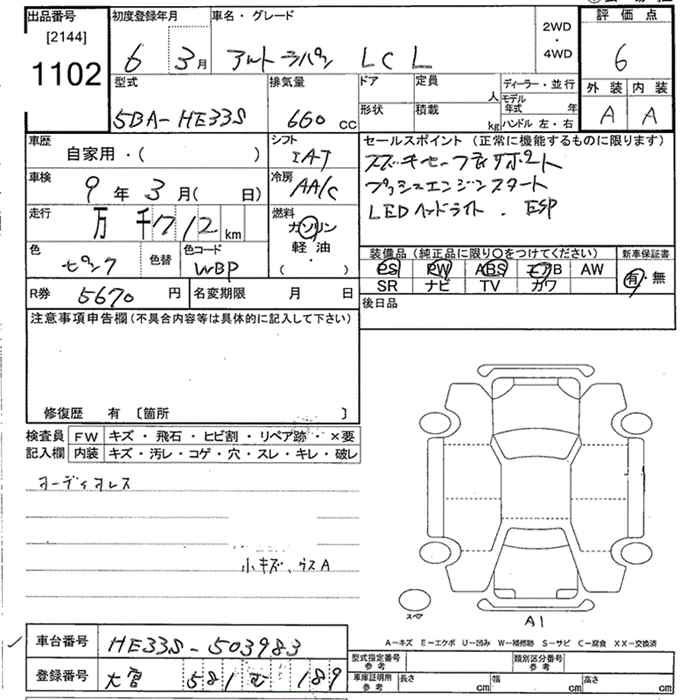 出品番号 初度登録年月 車名・グレード 2WD ・ 4WD 評価点
[2144]
1102
6 3月 アルトラパン LCL 6
型式 排気量 ドア 定員 人 ディーラー・並行 外装 内装
5BA-HE33S 660 CC 形状 積載 kg モデル年式 年 A A
ハンドル 左・右
車歴 自家用・( ) シフト IAT
セールスポイント (正常に機能するものに限ります)
スズキセーフティサポート
プッシュエンジンスタート
LEDヘッドライト . ESP
車検 9年3月( 日) 冷房 AA/C
走行 万 千712 km 燃料 ガソリン 軽油 ・ ( )
色 色替 色コード WBP
装備品 (純正品に限り○をつけてください) 新車保証書
PS PW ABS エアB AW 有・無
SR ナビ TV カワ
R券 5670円 名変期限 月 日 後日品
注意事項申告欄(不具合内容等は具体的に記入して下さい)
修復歴 有 〔箇所 〕
検査員 FW キズ・飛石・ヒビ割・リペア跡・×要
記入欄 内装 キズ・汚レ・コゲ・穴・スレ・キレ・破レ
オーディオレス
小キズ、ウスA
スペア
A1
A−キズ E−エクボ U−凹み W−補修跡 S−サビ C−腐食 XX−交換済
車台番号 HE33S-503983
登録番号 大宮 581 む 189
型式指定番号 参考 類別区分番号 参考
車庫証明用 参考 長さ cm 幅 cm 高さ cm